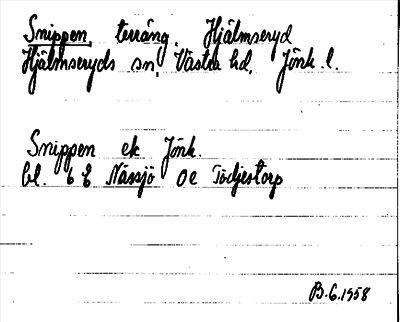 Snippen, terräng, Hjälmseryd
Hjälmseryds sn, Västra hd, Jönk. l.
Snippen ek Jönk.
bl. 6 E Nässjö 0e Tödjestorp
B. G. 1958